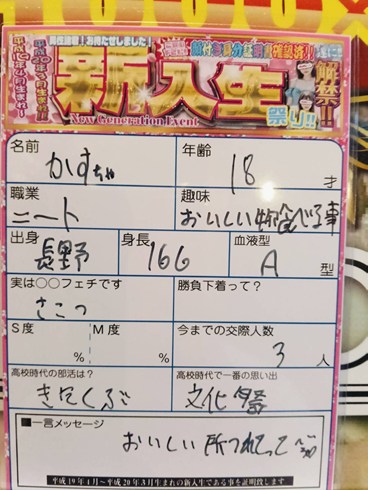 お待たせしました!
解禁!!
新入生
祭り!!
New Generation Event
名前
かすちゃ
年齢
18才
職業
ニート
趣味
おいしい物食べる事
出身
長野
身長
166
血液型
A型
実は○○フェチです
さこつ
勝負下着って?
S度
%
M度
%
今までの交際人数
3人
高校時代の部活は?
きたくぶ
高校時代で一番の思い出
文化祭
■一言メッセージ
おいしい所つれてって
平成19年4月〜平成20年3月生まれの新入生である事を証明致します